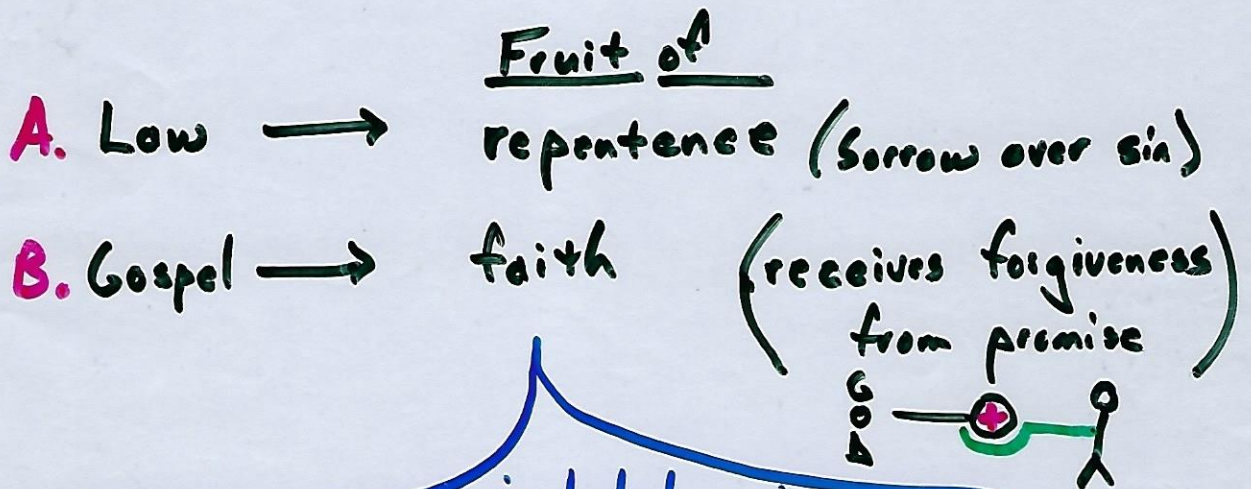 Fruit of
A. Law → repentence (Sorrow over sin)
B. Gospel → faith (receives forgiveness
from promise)
GOD